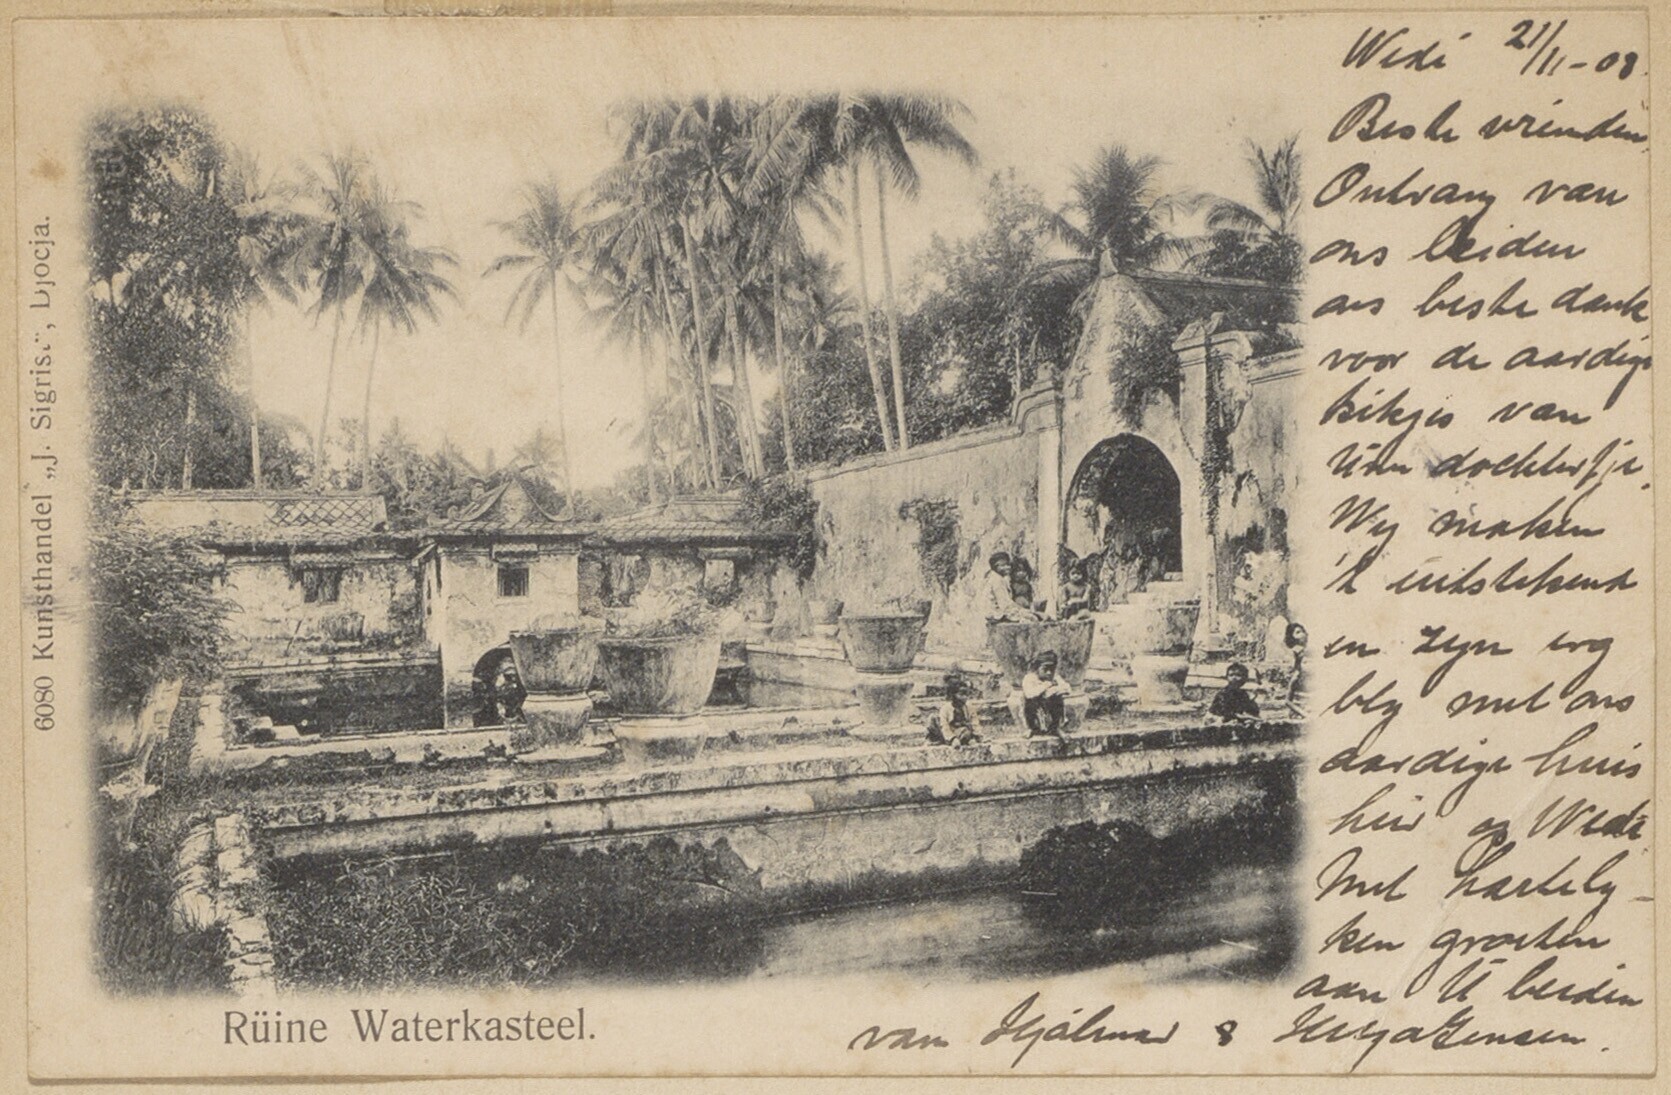 6080 Kunsthandel „J. Sigrist", Djocja.
Wedi 21/11-08.
Beste vrienden,
Ontvang van
ons beiden
ons beste dank
voor de aardige
kikjes van
Uw dochtertje.
Wy maken
't uitstekend
en zyn erg
bly met ons
aardige huis
hier op Wedi
Met hartely-
ken groeten
aan U beiden
van Hjálmar & Jensen.
Rüine Waterkasteel.